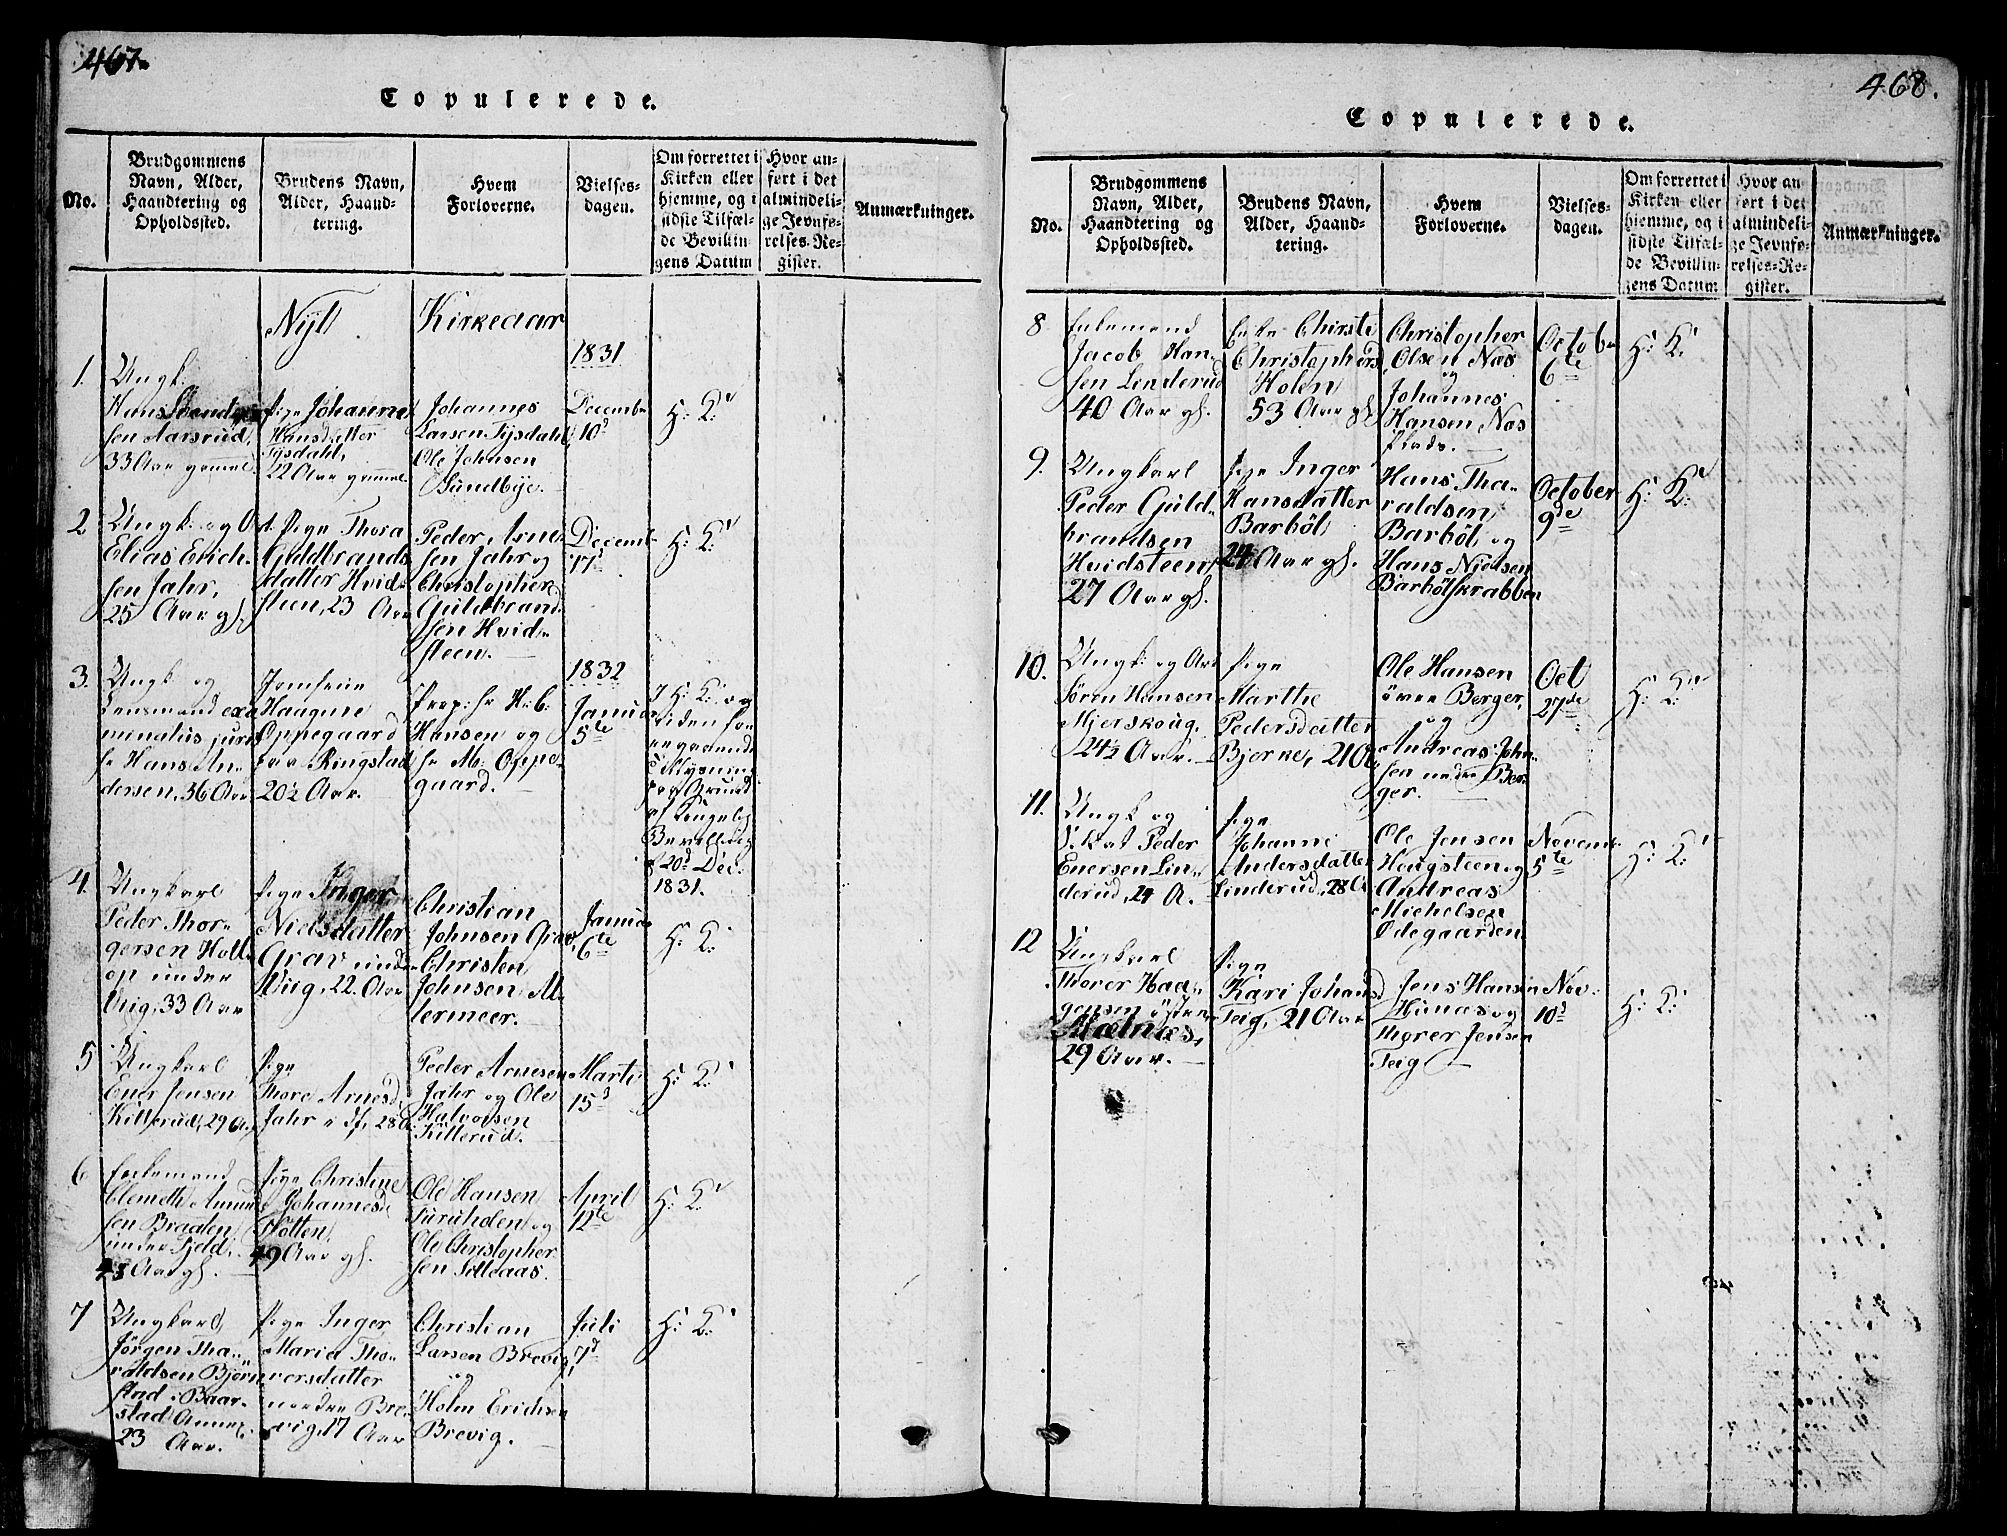 467.
Copulerede.
No.
Brudgommens Navn, Alder, Haandtering og Opholdssted.
Brudens Navn, Alder, Haandtering.
Hvem Forloverne.
Vielsesdagen.
Om forrettet i Kirken eller hjemme, og i sidste Tilfælde Bevillingens Datum
Hvor anført i det almindelige Jevnførelses-Register.
Anmærkninger.
Nyt Kirkeaar
1831
1.
Ungk:
Hans
sen Aarsrud,
33 Aar gammel
Pige Johanne
Hansdatter
Fysdahl,
22 Aar gammel
Johannes
Larsen Fysdahl,
Ole Johnsen
Sundbye.
Decembr
10d
H: K:
2.
Ungk: og
Elias Erich-
sen Jahr,
25 Aar gl.
Pige Thora
Guldbrands
datter Hvid-
steen, 23 Aar
Peder Arne
sen Jahr og
Christopher
Guldbrand
sen Hvid-
steen.
Decemb
17d
H: K:
3.
Ungk og
Lensmand exa
minatus juris
Hr Hans An-
dersen, 36 Aar
Jomfrue
Haagine
Oppegaard
Ringstad
20½ Aar.
Prop: Hr H: b:
Hansen og
Hr M: Oppe-
gaard.
1832
Januar
5te
I H: K: og
uden for
angaaende
Tillysning
paa Grund
af Kongelig
Bevilling
20d Dec:
1831.
4.
Ungkarl
Peder Thor-
gersen Holl-
op under
Uug, 33 Aar
Pige Inger
Nielsdatter
Grav under
Uug, 22 Aar
Christian
Johnsen Grav,
Christen
Johnsen
termeer.
Januar
6te
H: K:
5
Ungkarl
Ener Jensen
Kitterud, 29 A.
Pige
Thore Arnesd
Jahr 28 A
Peder Arnesen
Jahr og Ole
Halvorsen
Kitterud.
Marti
15d
H: K:
6
Enkemand
Clemeth Amund
sen Braaten
under Fjeld,
48 Aar gl.
Pige Christine
Johannesd
Hotten,
49 Aar gl.
Ole Hansen
Furuholen og
Ole Christopher
sen Sollaas.
April
12te
H: K:
7
Ungkarl
Jørgen Tha-
raldsen Bjørn
stad i Baar-
stad Annex
23 Aar.
Pige Inger
Maria Tho-
versdatter
nordre Bre-
vig, 17 Aar
Christian
Larsen Brevig,
og
Holm Erichsen
Brevig.
Juli
7d
H: K:
468.
Copulerede.
No.
Brudgommens Navn, Alder, Haandtering og Opholdssted.
Brudens Navn, Alder, Haandtering.
Hvem Forloverne.
Vielsesdagen.
Om forrettet i Kirken eller hjemme, og i sidste Tilfælde Bevillingens Datum
Hvor anført i det almindelige Jevnførelses-Register.
Anmærkninger.
8
Enkemand
Jacob Han-
sen Linderud
40 Aar gl.
Enke Chirsti
Christophersd
Holen
53 Aar gl
Christopher
Olsen Næs
og
Johannes
Hansen Næs
Plads.
October
6te
H: K:
9.
Ungkarl
Peder Guld-
brandsen
Hvidsteen
27 Aar gl.
Pige Inger
Hansdatter
Barböl
24 Aar gl.
Hans Tha-
raldsen
Barböl og
Hans Nielsen
Barbölskrabben
October
9de
H: K:
10.
Ungk: og
Sören Hansen
Mjerskoug.
24½ Aar.
Pige
Marthe
Pedersdatter
Bjerne, 21 A
Ole Hansen
övre Berger,
og
Andreas John
sen nedre Ber-
ger.
Oct
27de
H: K:
11.
Ungk og
Peder
Enersen Lin-
derud, 24 A.
Pige
Johanne
Andersdatter
Linderud, 28 A
Ole Jensen
Hougsteen og
Andreas
Michelsen
Ødegaarden.
Novem
5te
H: K:
12
Ungkarl
Thorer Haa-
gensen östre
Mælnæs,
29 Aar.
Pige
Kari Johansd
Teig, 21 Aar
Jens Hansen
Hunæs og
Thorer Jensen
Teig
Nov:
10d
H: K: